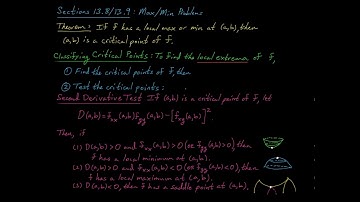 Sections 13.8/13.9: Max/Min Problems
Theorem: If f has a local max or min at (a,b), then
(a,b) is a critical point of f.
Classifying Critical Points: To find the local extrema of f,
① Find the critical points of f, then
② Test the critical points:
Second Derivative Test If (a,b) is a critical point of f, let
D(a,b) = f_xx(a,b) f_yy(a,b) - [f_xy(a,b)]².
Then, if
(1) D(a,b)>0 and f_xx(a,b)>0 (or f_yy(a,b)>0), then
f has a local minimum at (a,b).
(2) D(a,b)>0 and f_xx(a,b)<0 (or f_yy(a,b)<0), then
f has a local maximum at (a,b).
(3) D(a,b)<0, then f has a saddle point at (a,b).